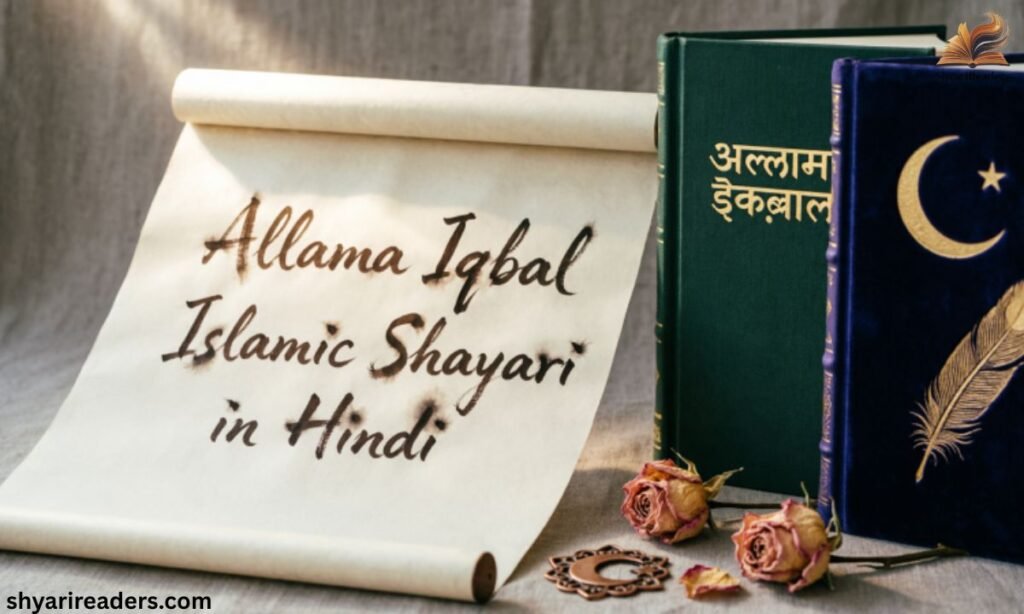 Allama Iqbal
Islamic Shayari
in Hindi
अल्लाम
इॆकब़ाल
shyarireaders.com